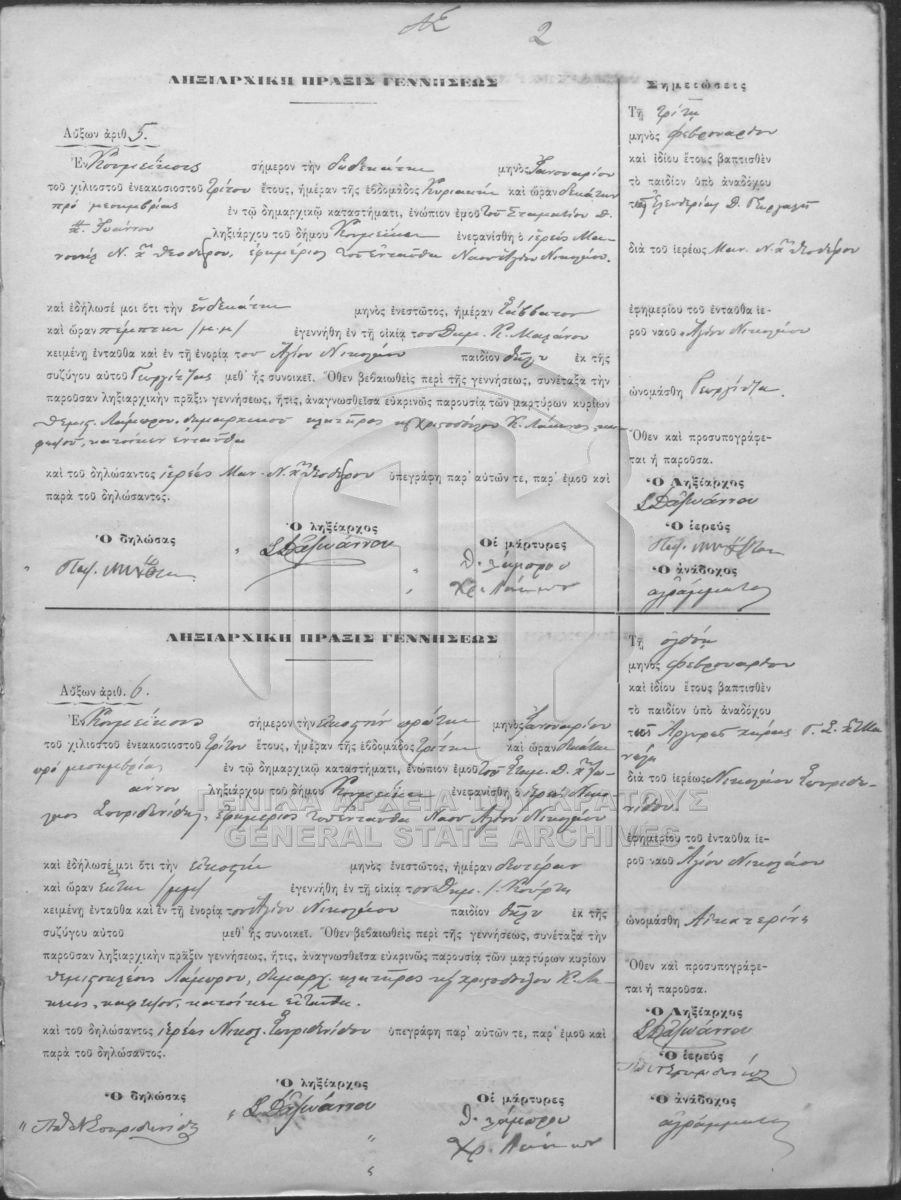 2
ΛΗΞΙΑΡΧΙΚΗ ΠΡΑΞΙΣ ΓΕΝΝΗΣΕΩΣ
Αὔξων ἀριθ. 5.
Ἐν Κουμεΐκοις σήμερον τὴν δωδεκάτην μηνὸς Ἰανουαρίου
τοῦ χιλιοστοῦ ἐνεακοσιοστοῦ τρίτου ἔτους, ἡμέραν τῆς ἑβδομάδος Κυριακὴν καὶ ὥραν δεκάτην
πρὸ μεσημβρίας ἐν τῷ δημαρχικῷ καταστήματι, ἐνώπιον ἐμοῦ τοῦ Σταματίου Δ.
Ἰωάννου ληξιάρχου τοῦ δήμου Κουμεΐκων ἐνεφανίσθη ὁ ἱερεὺς Μα-
νουὴλ Ν. ἐφημέριος τοῦ ἐνταῦθα Ναοῦ Ἁγίου Νικολάου.
καὶ ἐδήλωσέ μοι ὅτι τὴν ἑνδεκάτην μηνὸς ἐνεστῶτος, ἡμέραν Σάββατον
καὶ ὥραν πέμπτην /μ.μ/ ἐγεννήθη ἐν τῇ οἰκίᾳ τοῦ Δημ. Κ.
κειμένῃ ἐνταῦθα καὶ ἐν τῇ ἐνορίᾳ του Ἁγίου Νικολάου παιδίον θῆλυ ἐκ τῆς
συζύγου αὐτοῦ Γεωργίτζας μεθ' ἧς συνοικεῖ. Ὅθεν βεβαιωθεὶς περὶ τῆς γεννήσεως, συνέταξα τὴν
παροῦσαν ληξιαρχικὴν πρᾶξιν γεννήσεως, ἥτις, ἀναγνωσθεῖσα εὐκρινῶς παρουσίᾳ τῶν μαρτύρων κυρίων
Θεμιστ. Λάμπρου, δημαρχικοῦ κλητῆρος κ Χριστοδούλου Κ.
κατοίκων ἐνταῦθα
καὶ τοῦ δηλώσαντος ἱερέως Μαν. Ν. ὑπεγράφη παρ' αὐτῶν τε, παρ' ἐμοῦ καὶ
παρὰ τοῦ δηλώσαντος.
Ὁ δηλώσας
Ὁ ληξίαρχος
Οἱ μάρτυρες
Θ. Λάμπρου
Χρ.
Σημειώσεις
Τῇ τρίτῃ
μηνὸς Φεβρουαρίου
καὶ ἰδίου ἔτους βαπτισθὲν
τὸ παιδίον ὑπὸ ἀναδόχου
τῆς Ἐλευθερίας Δ.
διὰ τοῦ ἱερέως Μαν. Ν.
ἐφημερίου τοῦ ἐνταῦθα ἱε-
ροῦ ναοῦ Ἁγίου Νικολάου
ὠνομάσθη Γεωργίτζα.
Ὅθεν καὶ προσυπογράφε-
ται ἡ παροῦσα.
Ὁ Ληξίαρχος
Ὁ ἱερεὺς
Ὁ ἀνάδοχος
ἀγράμματος
ΛΗΞΙΑΡΧΙΚΗ ΠΡΑΞΙΣ ΓΕΝΝΗΣΕΩΣ
Αὔξων ἀριθ. 6.
Ἐν Κουμεΐκοις σήμερον τὴν εἰκοστὴν πρώτην μηνὸς Ἰανουαρίου
τοῦ χιλιοστοῦ ἐνεακοσιοστοῦ τρίτου ἔτους, ἡμέραν τῆς ἑβδομάδος Τρίτην καὶ ὥραν δεκάτην
πρὸ μεσημβρίας ἐν τῷ δημαρχικῷ καταστήματι, ἐνώπιον ἐμοῦ τοῦ Σταμ. Δ.
ληξιάρχου τοῦ δήμου Κουμεΐκων ἐνεφανίσθη ὁ ἱερεὺς Νικό-
λαος Σπυριδωνίδης, ἐφημέριος τοῦ ἐνταῦθα Ναοῦ Ἁγίου Νικολάου
καὶ ἐδήλωσέ μοι ὅτι τὴν εἰκοστὴν μηνὸς ἐνεστῶτος, ἡμέραν Δευτέραν
καὶ ὥραν ἕκτην /μ.μ/ ἐγεννήθη ἐν τῇ οἰκίᾳ τοῦ Δημ.
κειμένῃ ἐνταῦθα καὶ ἐν τῇ ἐνορίᾳ του Ἁγίου Νικολάου παιδίον θῆλυ ἐκ τῆς
συζύγου αὐτοῦ μεθ' ἧς συνοικεῖ. Ὅθεν βεβαιωθεὶς περὶ τῆς γεννήσεως, συνέταξα τὴν
παροῦσαν ληξιαρχικὴν πρᾶξιν γεννήσεως, ἥτις, ἀναγνωσθεῖσα εὐκρινῶς παρουσίᾳ τῶν μαρτύρων κυρίων
Θεμιστοκλέους Λάμπρου, δημαρχ. κλητῆρος κ Χριστοδούλου Κ.
κατοίκων ἐνταῦθα.
καὶ τοῦ δηλώσαντος ἱερέως Νικολ. Σπυριδωνίδου ὑπεγράφη παρ' αὐτῶν τε, παρ' ἐμοῦ καὶ
παρὰ τοῦ δηλώσαντος.
Ὁ δηλώσας
Ὁ ληξίαρχος
Οἱ μάρτυρες
Θ. Λάμπρου
Χρ.
Τῇ ὀγδόῃ
μηνὸς Φεβρουαρίου
καὶ ἰδίου ἔτους βαπτισθὲν
τὸ παιδίον ὑπὸ ἀναδόχου
διὰ τοῦ ἱερέως Νικολάου Σπυριδω-
νίδου
ἐφημερίου τοῦ ἐνταῦθα ἱε-
ροῦ ναοῦ Ἁγίου Νικολάου
ὠνομάσθη Αἰκατερίνη
Ὅθεν καὶ προσυπογράφε-
ται ἡ παροῦσα.
Ὁ Ληξίαρχος
Ὁ ἱερεὺς
Ὁ ἀνάδοχος
ἀγράμματος
ΓΕΝΙΚΑ ΑΡΧΕΙΑ ΤΟΥ ΚΡΑΤΟΥΣ
GENERAL STATE ARCHIVES